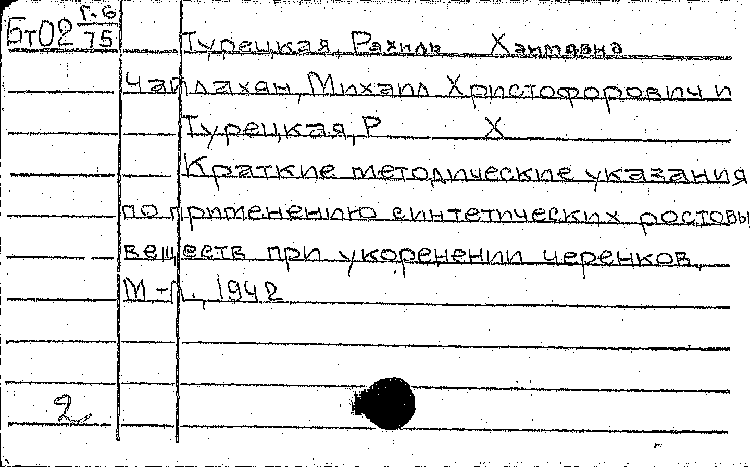 Г.6
Бт02 75
Турецкая, Рахиль Хаимовна
Чайлахян, Михаил Христофорович и
Турецкая, Р Х
Краткие методические указания
по применению синтетических ростовы
веществ при укоренении черенков,
М-Л., 1942
2